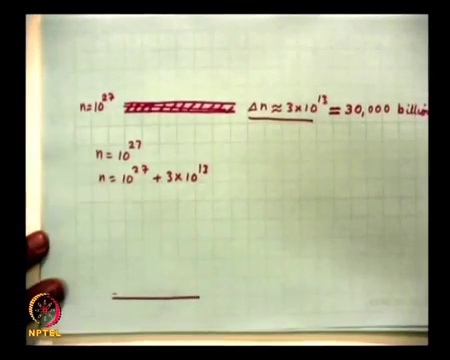 n=10²⁷ Δn ≈ 3×10¹³ = 30,000 billion
n = 10²⁷
n = 10²⁷ + 3×10¹³
NPTEL